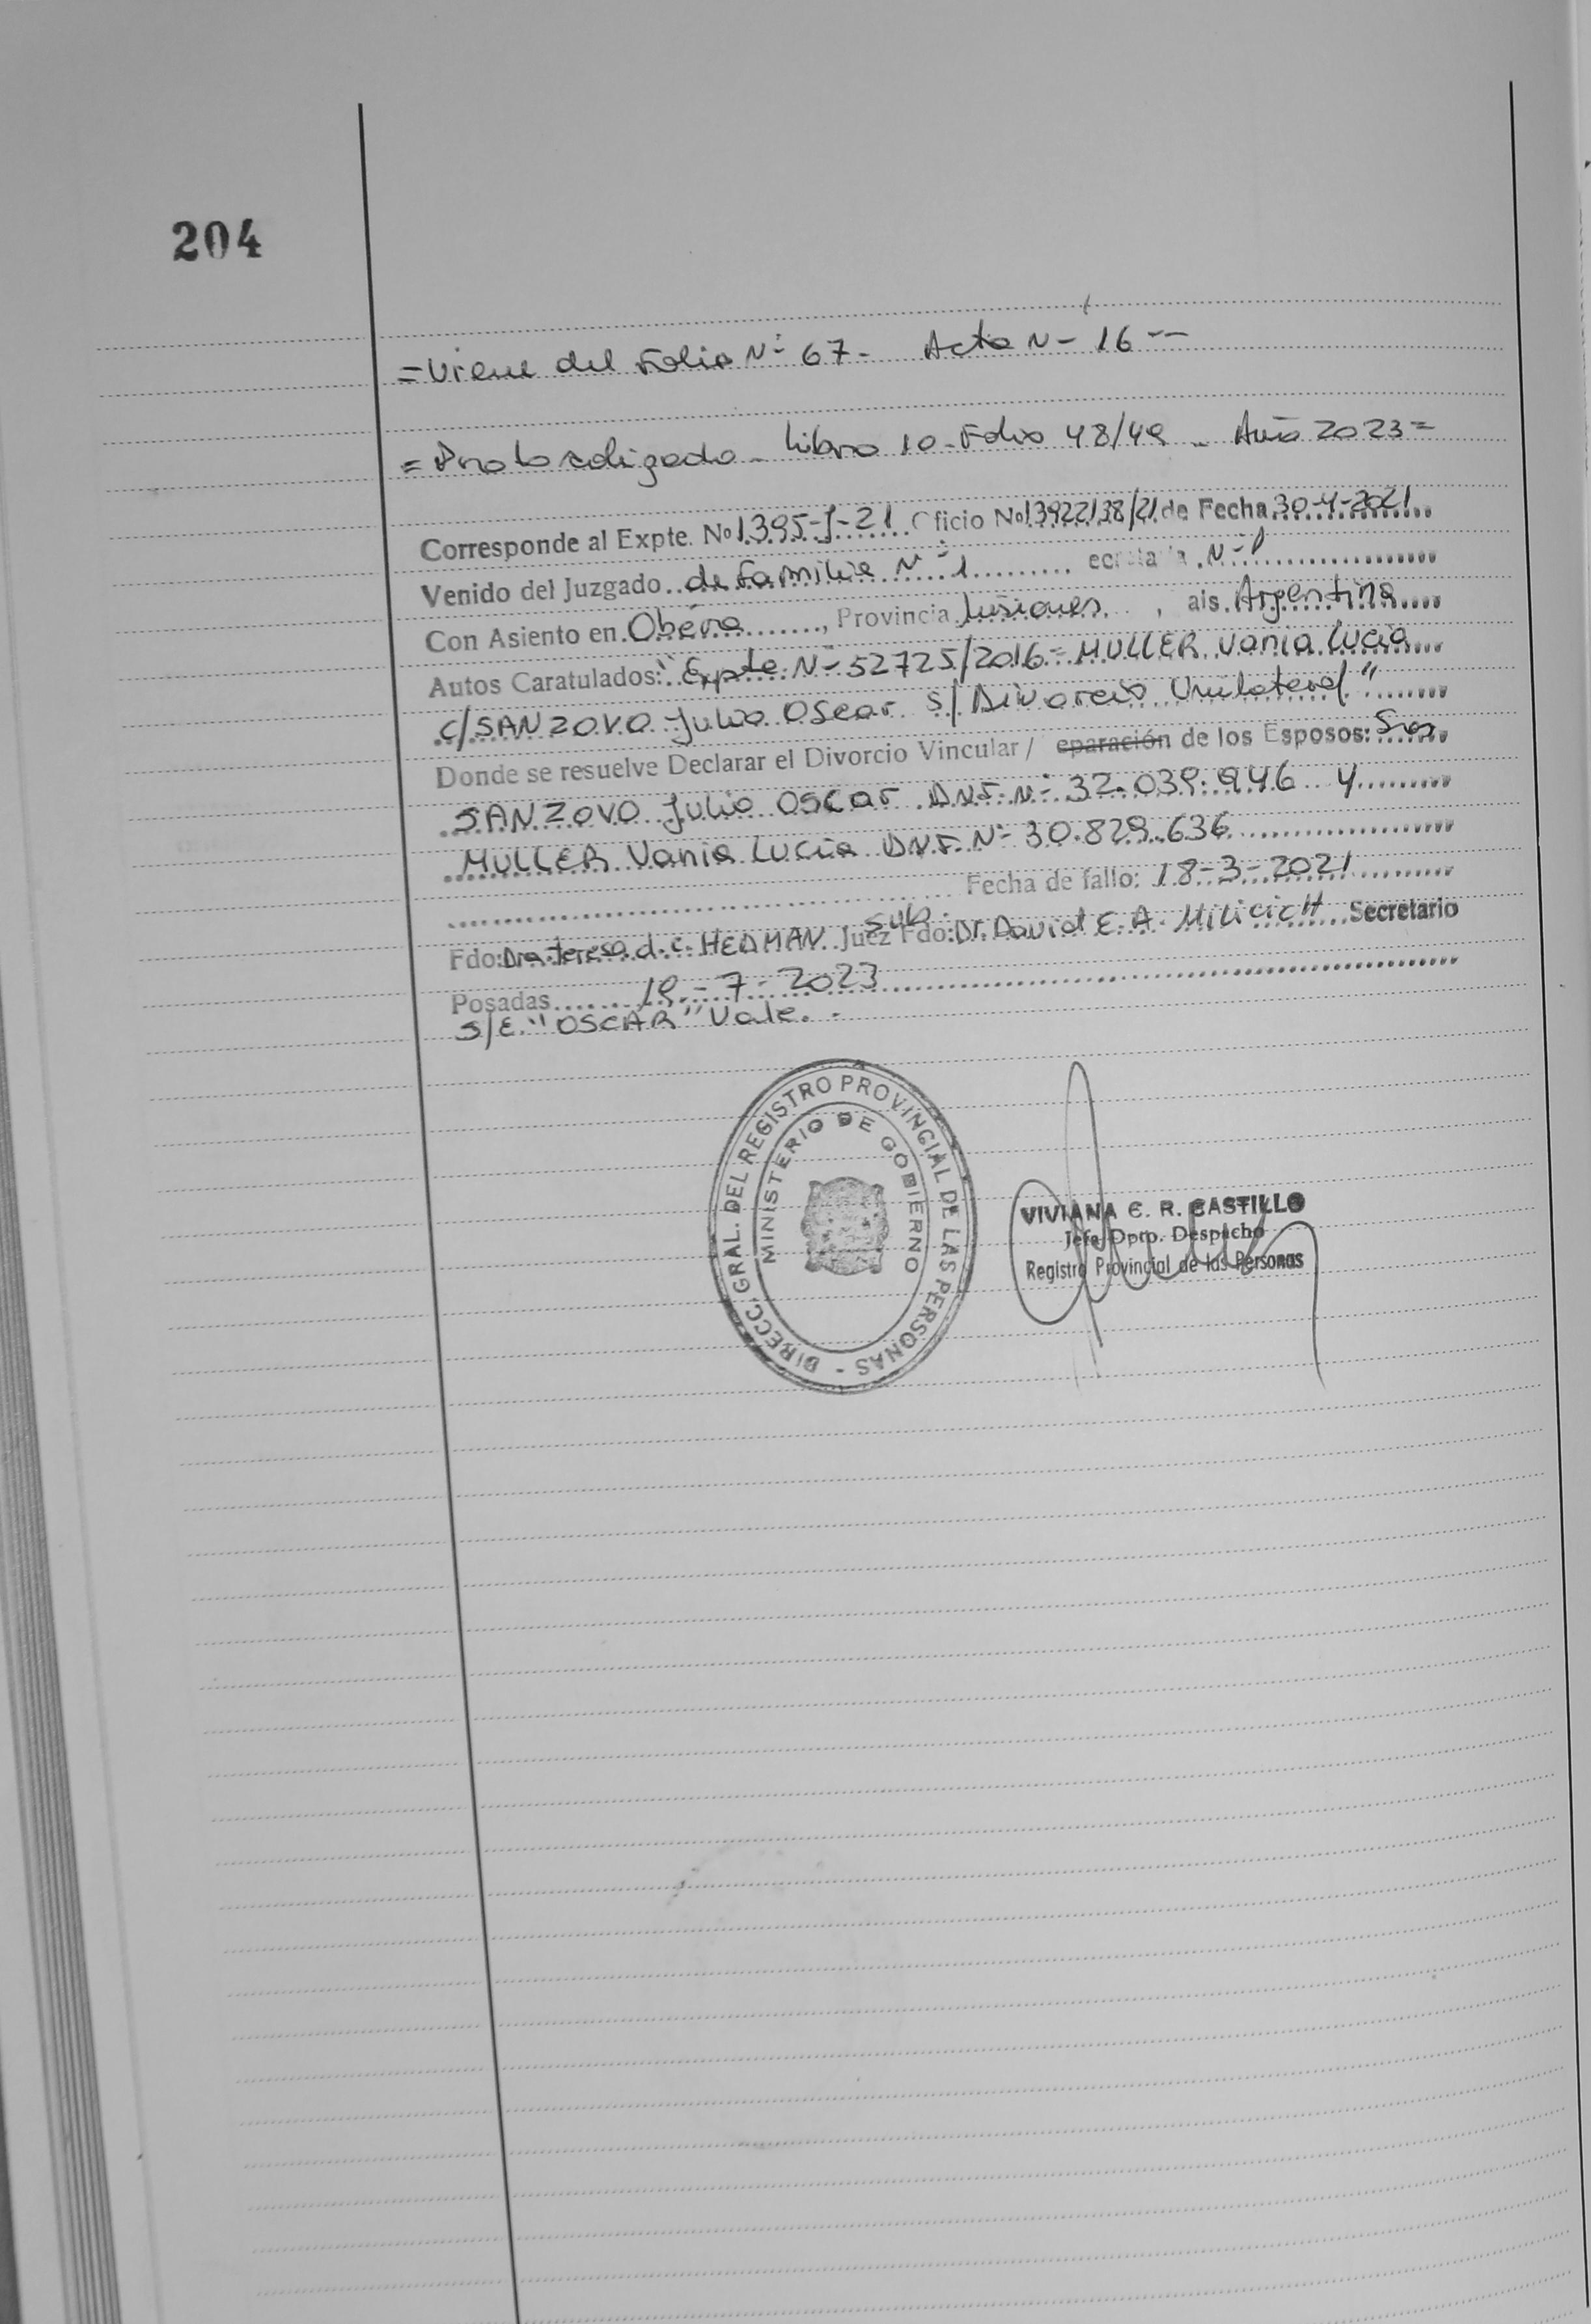 204
= Viene del Folio N- 67 - Acta N- 16 --
= Protocolizado - Libro 10 - Folio 48/49 - Año 2023 =
Corresponde al Expte. Nº 1395-J-21 Oficio Nº 13922138/21 de Fecha 30-4-2021
Venido del Juzgado de Familia N- 1 ecretaría N- 1
Con Asiento en Oberá, Provincia Misiones, aís Argentina
Autos Caratulados: "Expte N- 52725/2016 - MULLER Vania Lucia
C/ SANZOVO Julio Oscar s/ Divorcio Unilateral"
Donde se resuelve Declarar el Divorcio Vincular / eparación de los Esposos: Sres
SANZOVO Julio OSCAR D.N.I. N- 32.039.946 y
MULLER Vania Lucia DNI. N- 30.829.636
Fecha de fallo: 18-3-2021
Fdo: Dra Teresa d. c. HEDMAN Juez Sub. Fdo: Dr. David E. A. MILICICH Secretario
Posadas 19-7-2023
S/E. "OSCAR" Vale. -
DIRECC. GRAL. DEL REGISTRO PROVINCIAL DE LAS PERSONAS -
MINISTERIO DE GOBIERNO
VIVIANA C. R. CASTILLO
Jefe Dpto. Despacho
Registro Provincial de las Personas